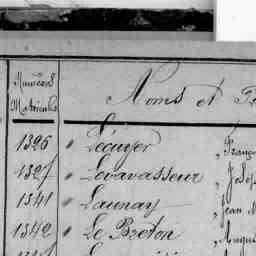 Numéros
Matricules
Noms et
1326 Lécuyer Franço
1327 Levavasseur Josep
1341 Launay Jean M
1342 Le Breton Augus